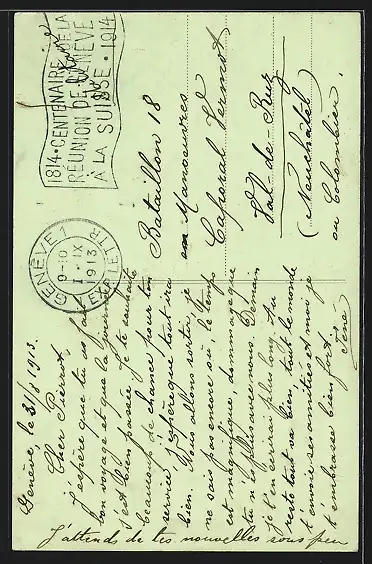 1814 • CENTENAIRE DE LA
RÉUNION DE GENÈVE
À LA SUISSE • 1914
GENÈVE 1
EXP. LETTR.
9-10
1 IX
1913
Bataillon 18
en Manoeuvres
Caporal
Val-de-Ruz
(Neuchâtel)
ou Colombier.
Genève, le 31/8 1913.
Cher Pierrot
J'espère que tu as fait
bon voyage et que la
s'est bien passée. Je te souhaite
beaucoup de chance pour ton
service j'espère que tout ira
bien. Nous allons sortir, je
ne sais pas encore où, le temps
est magnifique, dommage que
tu n'es plus avec nous. Demain
je t'en écrirai plus long. Au
reste tout va bien, tout le monde
t'envoie ses amitiés et moi je
t'embrasse bien fort.
J'attends de tes nouvelles sous peu